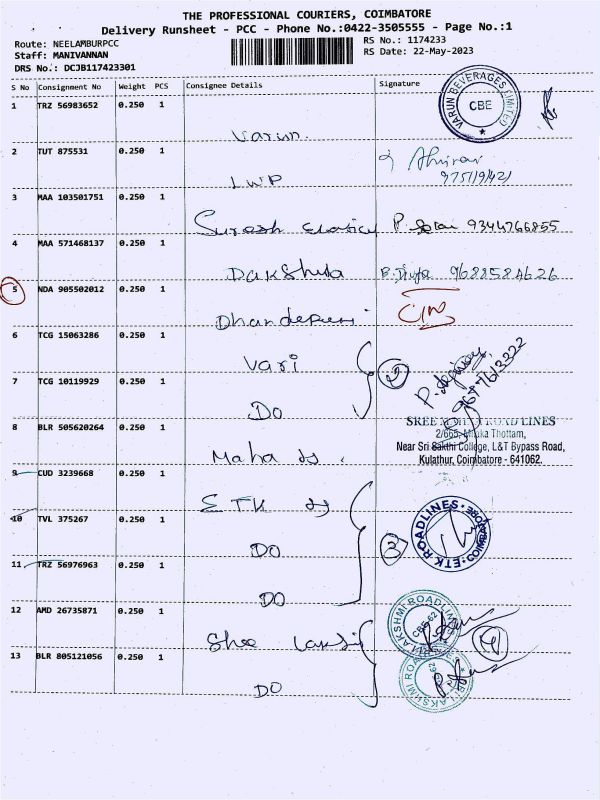 THE PROFESSIONAL COURIERS, COIMBATORE
Delivery Runsheet - PCC - Phone No.:0422-3505555 - Page No.:1
Route: NEELAMBURPCC
RS No.: 1174233
Staff: MANIVANNAN
RS Date: 22-May-2023
DRS No.: DCJB117423301
S No Consignment No Weight PCS Consignee Details Signature
1 TRZ 56983652 0.250 1
VARUN BEVERAGES LIMITED
CBE
Varun
2 TUT 875531 0.250 1
LWP
3 MAA 103501751 0.250 1
Suresh P. 9344766855
4 MAA 571468137 0.250 1
Dakshya B. Divya 9688584626
5 NDA 905502012 0.250 1
6 TCG 15063286 0.250 1
Vari 2
7 TCG 10119929 0.250 1
DO
8 BLR 505620264 0.250 1
Maha
SREE ROAD LINES
2/665, Thottam,
Near Sri Sakthi College, L&T Bypass Road,
Kulathur, Coimbatore - 641062.
9 CUD 3239668 0.250 1
ETK
10 TVL 375267 0.250 1
DO 3
ETK ROADLINES COIMBATORE
11 TRZ 56976963 0.250 1
DO
12 AMD 26735871 0.250 1
Shee
SRI LAKSHMI ROADLINES
CBE-62
4
13 BLR 805121056 0.250 1
DO